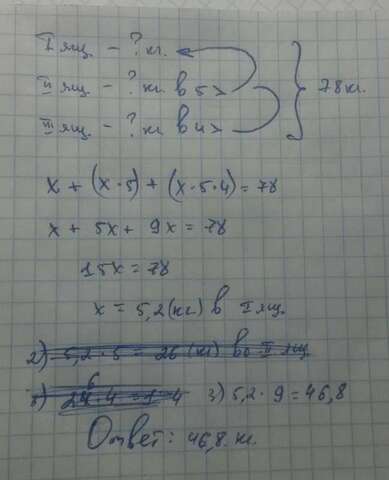 I ящ. - ? кг.
II ящ. - ? кг в 5 >
III ящ. - ? кг в 4 >
78 кг.
x + (x · 5) + (x · 5 · 4) = 78
x + 5x + 9x = 78
15x = 78
x = 5,2 (кг) в I ящ.
2) 5,2 · 5 = 26 (кг) во II ящ
3) 5,2 · 9 = 46,8
Ответ: 46,8 кг.